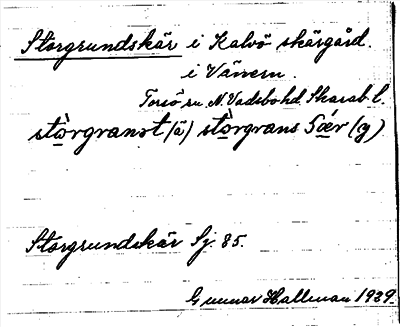 Storgrundskär i Kalvö skärgård.
i Vänern.
Torsö sn. N. Vadsbo hd. Skarab. l.
stòrgranot (ä) stòrgrans
Storgrundskär Sj. 85.
Gunnar Hallman 1929.